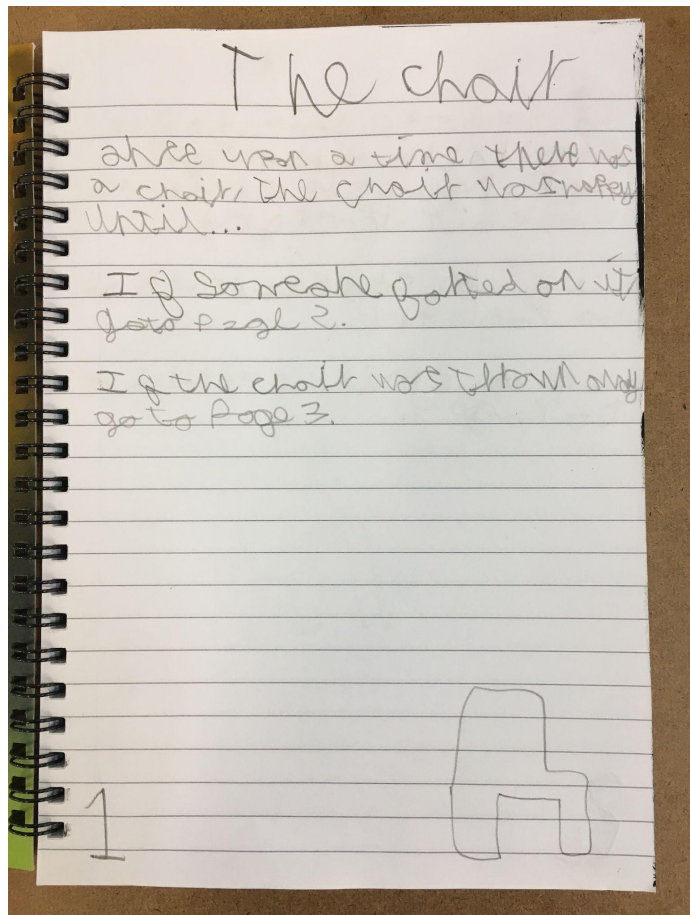 The chair
once upon a time there was
a chair, the chair was happy
until...
If someone farted on it
go to page 2.
If the chair was thrown away
go to Page 3.
1